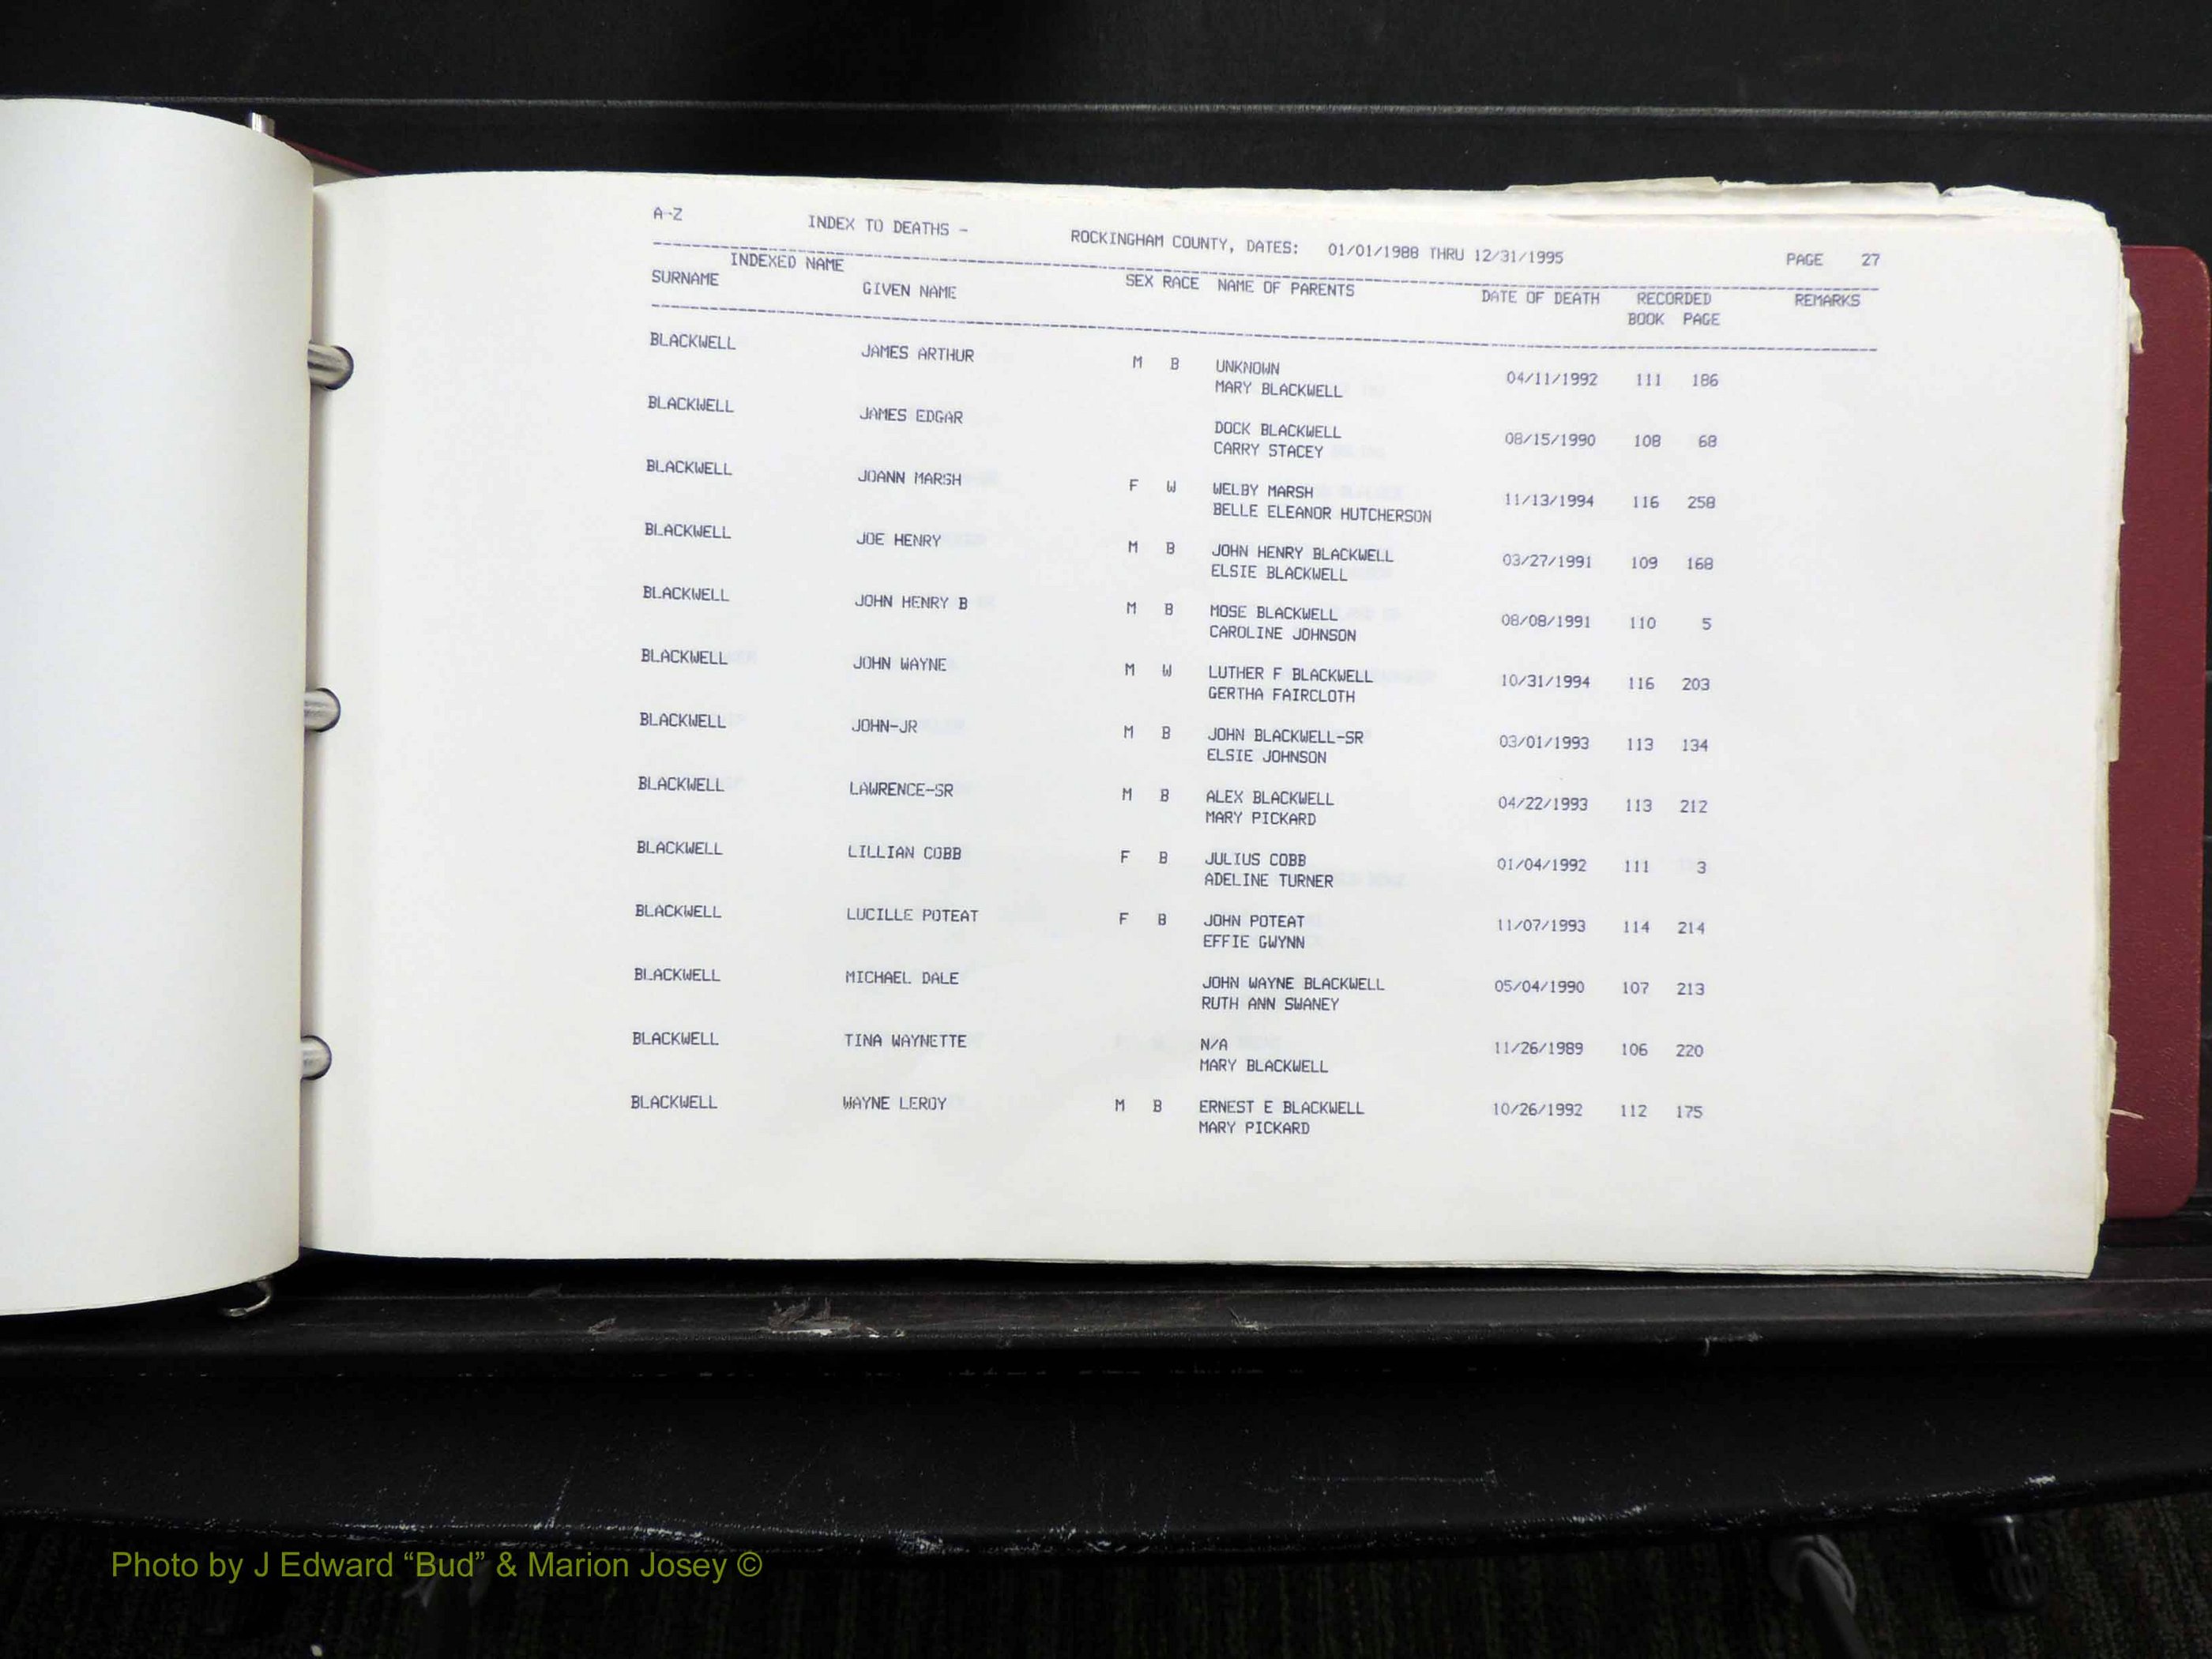 A-Z INDEX TO DEATHS - ROCKINGHAM COUNTY, DATES: 01/01/1988 THRU 12/31/1995 PAGE 27
INDEXED NAME
SURNAME GIVEN NAME SEX RACE NAME OF PARENTS DATE OF DEATH RECORDED REMARKS
BOOK PAGE
BLACKWELL JAMES ARTHUR M B UNKNOWN 04/11/1992 111 186
MARY BLACKWELL
BLACKWELL JAMES EDGAR DOCK BLACKWELL 08/15/1990 108 68
CARRY STACEY
BLACKWELL JOANN MARSH F W WELBY MARSH 11/13/1994 116 258
BELLE ELEANOR HUTCHERSON
BLACKWELL JOE HENRY M B JOHN HENRY BLACKWELL 03/27/1991 109 168
ELSIE BLACKWELL
BLACKWELL JOHN HENRY B M B MOSE BLACKWELL 08/08/1991 110 5
CAROLINE JOHNSON
BLACKWELL JOHN WAYNE M W LUTHER F BLACKWELL 10/31/1994 116 203
GERTHA FAIRCLOTH
BLACKWELL JOHN-JR M B JOHN BLACKWELL-SR 03/01/1993 113 134
ELSIE JOHNSON
BLACKWELL LAWRENCE-SR M B ALEX BLACKWELL 04/22/1993 113 212
MARY PICKARD
BLACKWELL LILLIAN COBB F B JULIUS COBB 01/04/1992 111 3
ADELINE TURNER
BLACKWELL LUCILLE POTEAT F B JOHN POTEAT 11/07/1993 114 214
EFFIE GWYNN
BLACKWELL MICHAEL DALE JOHN WAYNE BLACKWELL 05/04/1990 107 213
RUTH ANN SWANEY
BLACKWELL TINA WAYNETTE N/A 11/26/1989 106 220
MARY BLACKWELL
BLACKWELL WAYNE LEROY M B ERNEST E BLACKWELL 10/26/1992 112 175
MARY PICKARD
Photo by J Edward “Bud” & Marion Josey ©